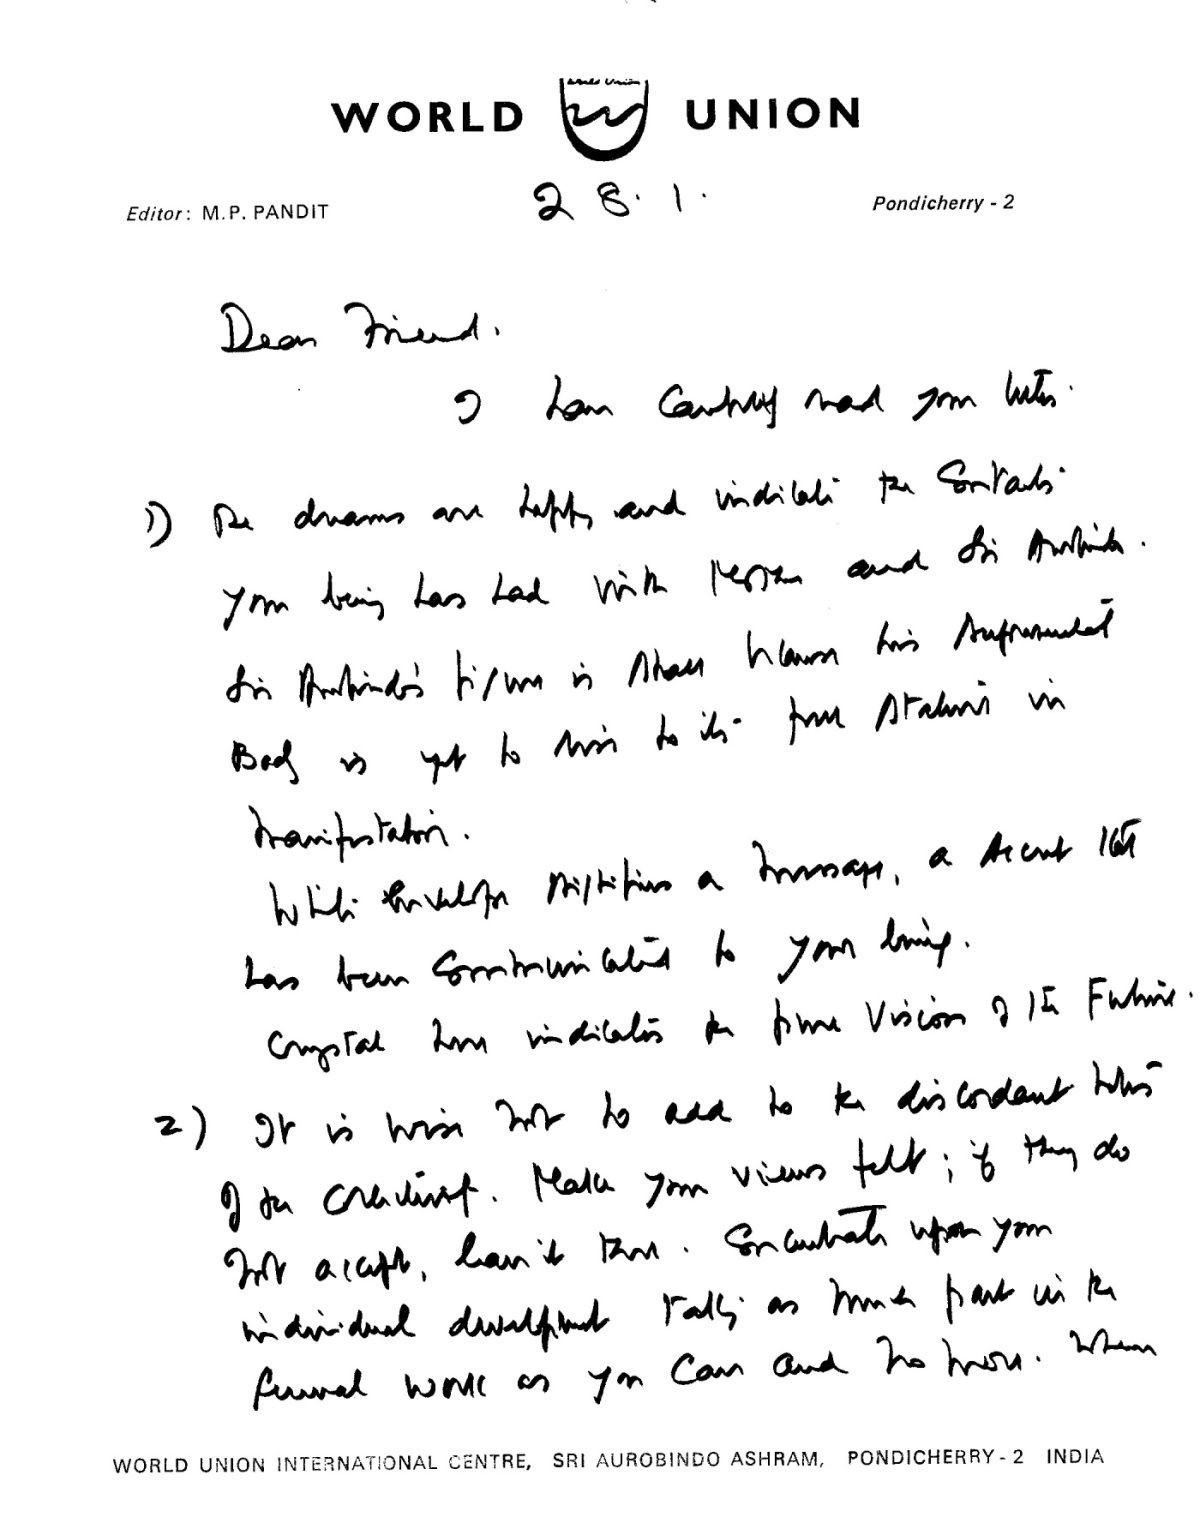 WORLD UNION
World Union
Editor: M.P. PANDIT
28.1.
Pondicherry - 2
Dear Friend.
I have carefully read your letter.
1) The dreams are happy and indicate the contacts
your being has had with Mother and Sri Aurobindo.
Sri Aurobindo's figure is small because his supramental
Body is yet to rise to its full stature in
manifestation.
White envelope signifies a message, a secret that
has been communicated to your being.
Crystal here indicates the pure vision of the Future.
2) It is wise not to add to the discordant notes
of the creativity. Make your views felt; if they do
not accept, leave it there. Concentrate upon your
individual development taking as much part in the
general work as you can and no more. When
WORLD UNION INTERNATIONAL CENTRE, SRI AUROBINDO ASHRAM, PONDICHERRY - 2 INDIA